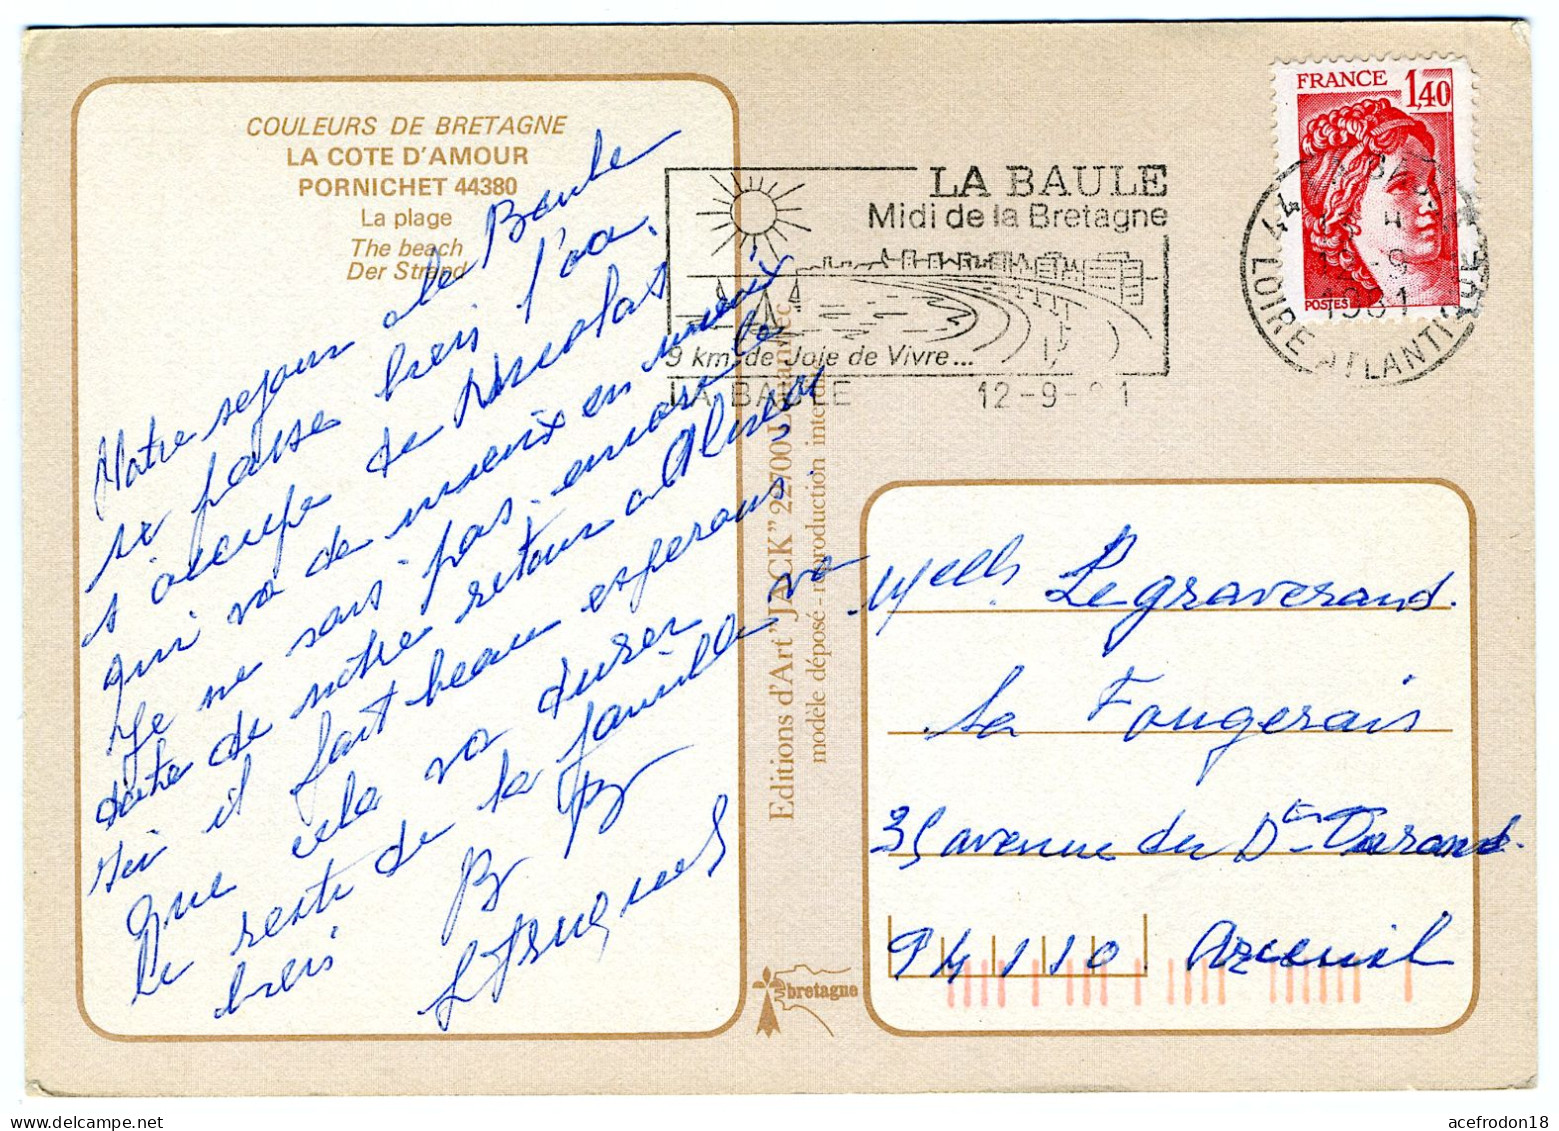 COULEURS DE BRETAGNE
LA COTE D'AMOUR
PORNICHET 44380
La plage
The beach
Der Strand
Notre sejour de Baule
se passe bien l'on
s'occupe de Nicolas
qui va de mieux en mieux
Je ne sais pas encore la
date de notre retour
ici il fait beau esperons
que cela va durer
le reste de la famille va
bien
LA BAULE
Midi de la Bretagne
9 km de Joie de Vivre...
LA BAULE 12-9- 1
FRANCE 1,40
POSTES
44 LA BAULE
12-9
1981
LOIRE ATLANTIQUE
Editions d'Art "JACK" 22700 Louannec
modèle déposé - reproduction inter
bretagne
Melle Legraverand.
La Fougerais
35 avenue du Dr Durand.
94110 Arcueil
acefrodon18